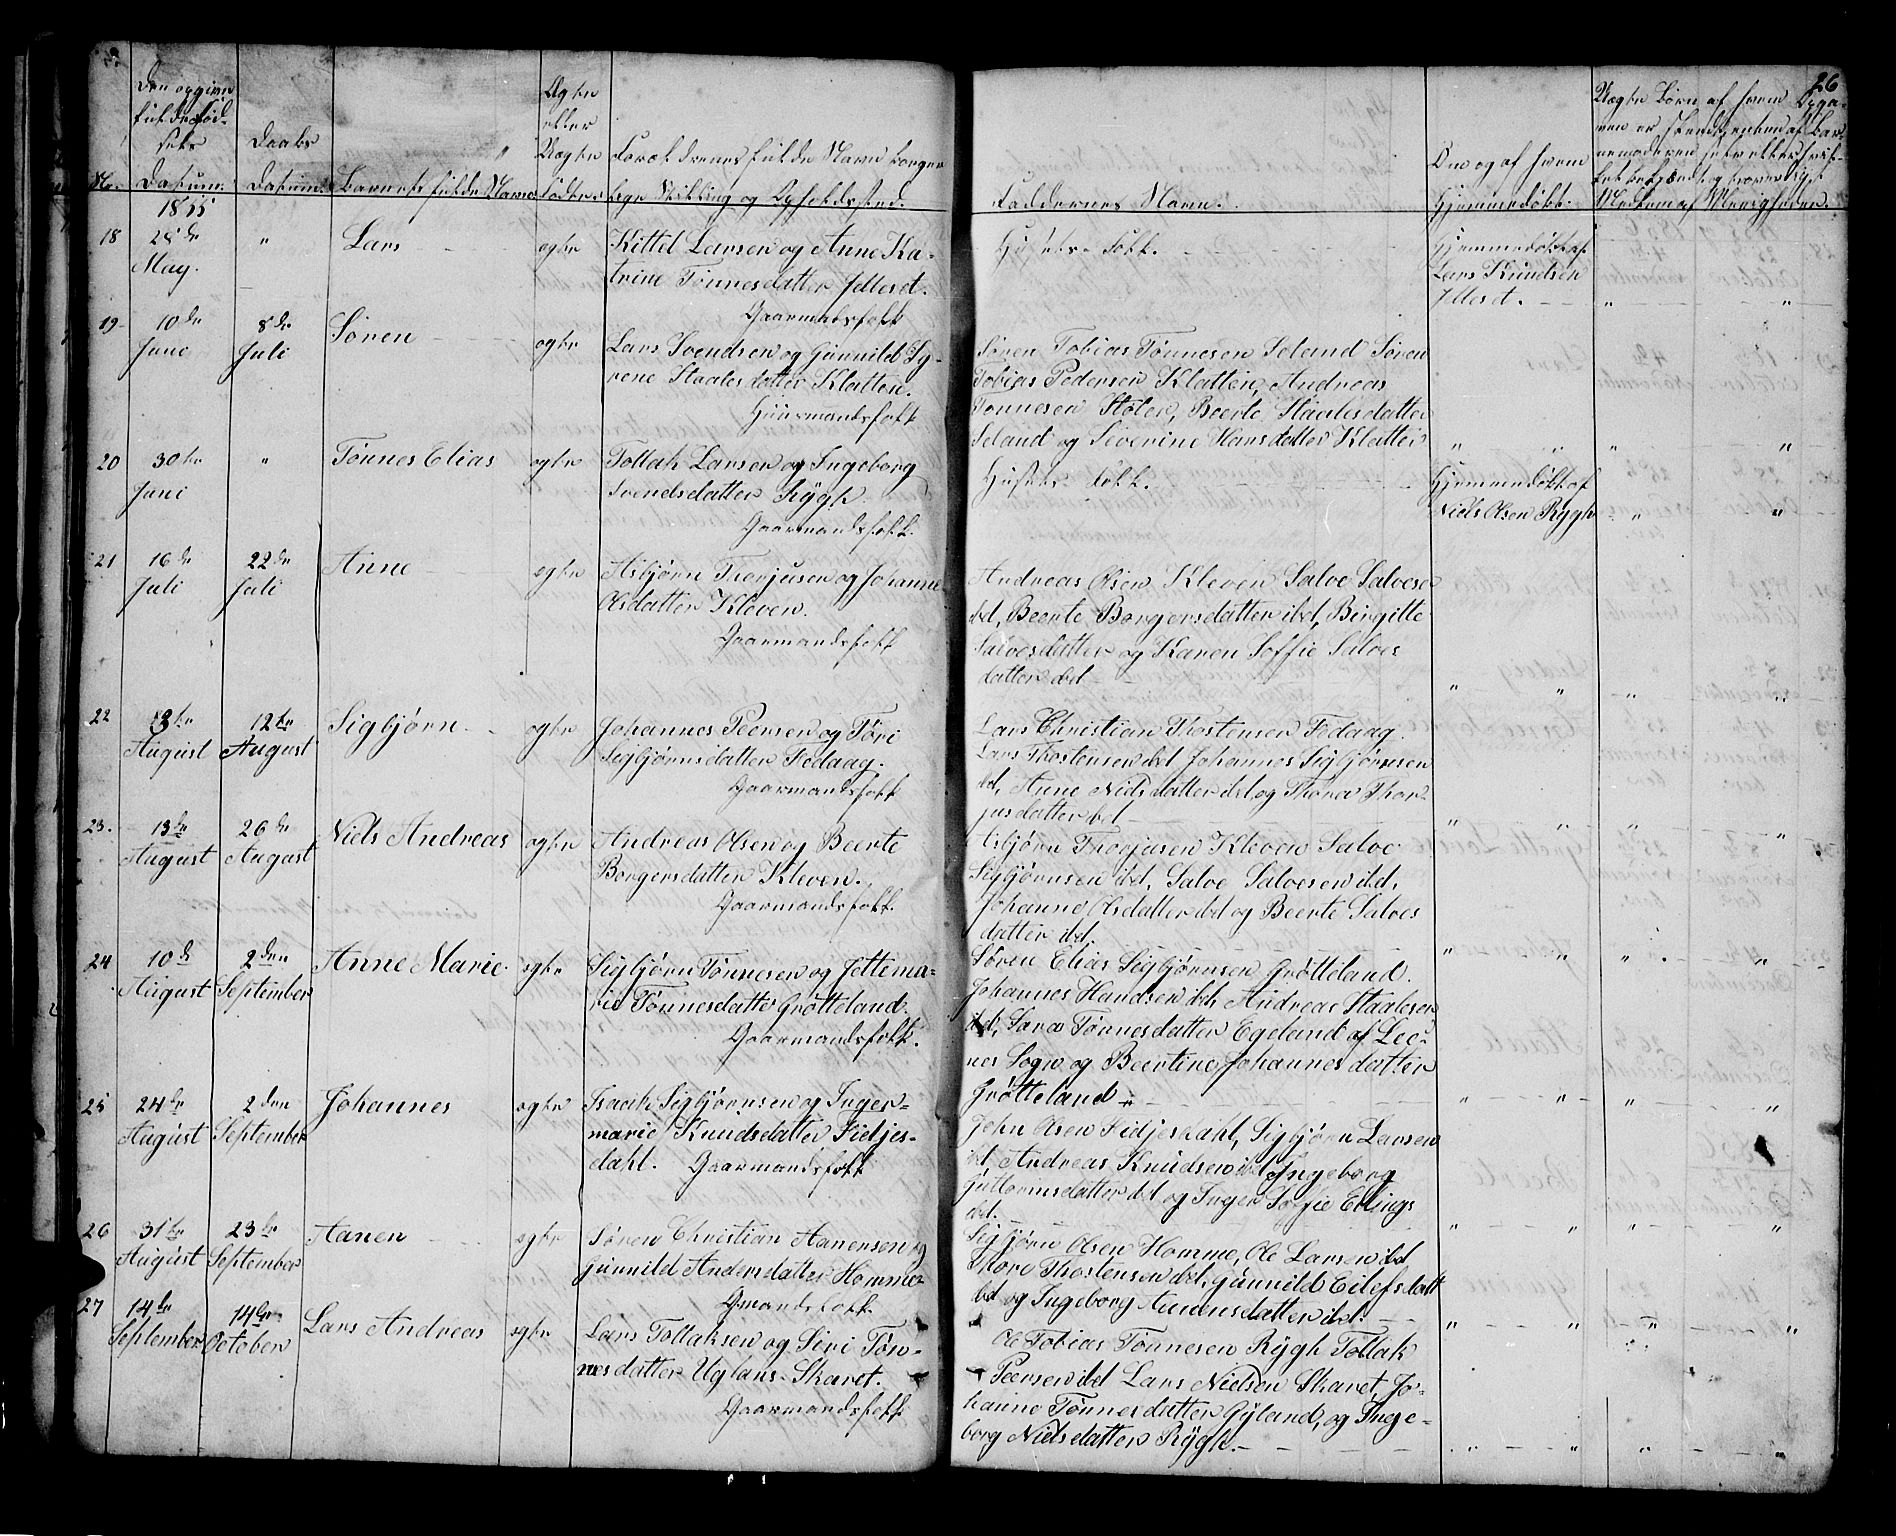 26
Den opgivne
fulde Fød-
sels
Datum.
No.
Daabs
Datum.
Barnets fulde Navn
Ægte
eller
Uægte
fødte.
Forældrenes fulde Navn borger-
lige Stilling og Opholdsted.
Faddernes Navn.
Om og af hvem
Hjemmedøbt.
1855
18
28de
May.
"
Lars
egte
Kittel Larsen og Anne Ka-
trine Tønnesdatter Jelleset.
Gaarmansfolk
Husets Folk.
Hjemmedøbt af
Lars Knudsen
Jelleset.
19
10de
Juni
8de
Juli
Søren
egte
Lars Svendsen og Gunnild Sy-
rene Staalesdatter Klatten.
Huusmandsfolk
Søren Tobias Tønnesen Seland Søren
Tobias Pedersen Klatten, Andreas
Tønnesen Stølen, Beerte Staalesdatter
Seland og Severine Hansdatter Klatten
20
30te
Juni
"
Tønnes Elias
egte
Tollak Larsen og Ingeborg
Svendsdatter Rygh
Gaarmandsfolk.
Husets Folk.
Hjemmedøbt af
Niels Olsen Rygh
21
16de
Juli
22de
Juli
Anne
egte
Asbjørn Thorjusen og Johanne
Olsdatter Kleven.
Gaarmandsfolk
Andreas Olsen Kleven Salve Salvesen
ibd, Beerte Borgersdatter ibd, Birgitte
Salvesdatter og Karen Soffie Salves
datter ibd
22
3te
August
12te
August
Sigbjørn
egte
Johannes Peersen og Tøri
Sigbjørnsdatter Fedaag.
Gaarmandsfolk
Lars Christian Thostensen Fedaag
Lars Thostensen ibd Johannes Sigbjørnsen
ibd, Anne Nielsdatter ibd og Thorea Thor-
jusdatter ibd
23.
13de
August
26de
August
Niels Andreas
egte
Andreas Olsen og Beerte
Borgersdatter Kleven.
Gaarmandsfolk.
Asbjørn Thorjusen Kleven Salve
Sigbjørnsen ibd, Salve Salvesen ibd,
Johanne Olsdatter ibd og Beerte Salves
datter ibd.
24
10d
August
2den
September
Anne Marie
egte
Sigbjørn Tønnesen og Jettema-
rie Tønnesdatter Grøtteland.
Gaarmandsfolk.
Søren Elias Sigbjørnsen Grøtteland.
Johannes Handsen ibd, Andreas Staalesen
ibd, Sara Tønnesdatter Egeland af Lee-
nes Sogn og Beertine Johannesdatter
Grøtteland
25
24de
August
2den
September
Johannes
egte
Isaak Sigbjørnsen og Inger-
marie Knudsdatter Fidjes-
dahl. Gaarmandsfolk
John Olsen Fidjesdahl, Sigbjørn Larsen
ibd, Andreas Knudsen ibd Ingeborg
Guttormsdatter ibd og Inger Soffie Ellings
ibd.
26
31te
August
23de
September
Aanen
egte
Søren Christian Aanensen og
Gunnild Andersdatter Homme
Gmandsfolk.
Sigbjørn Olsen Homme, Ole Larsen ibd
Thore Thostensen ibd, Gunnild Eilefsdatt
ibd og Ingeborg Aanensdatter ibd.
27
14de
September
14de
October
Lars Andreas
egte
Lars Tollaksen og Siri Tøn-
nesdatter Uglans-Skaret.
Gaarmandsfolk
Ole Tobias Tønnesen Rygh Tollak
Peersen ibd Lars Nielsen Skaret, Jo-
hanne Tønnesdatter Gyland, og Inge-
borg Nielsdatter Rygh.